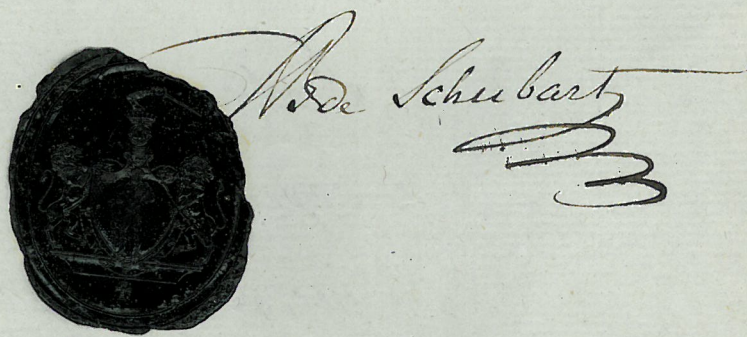 de Schubart